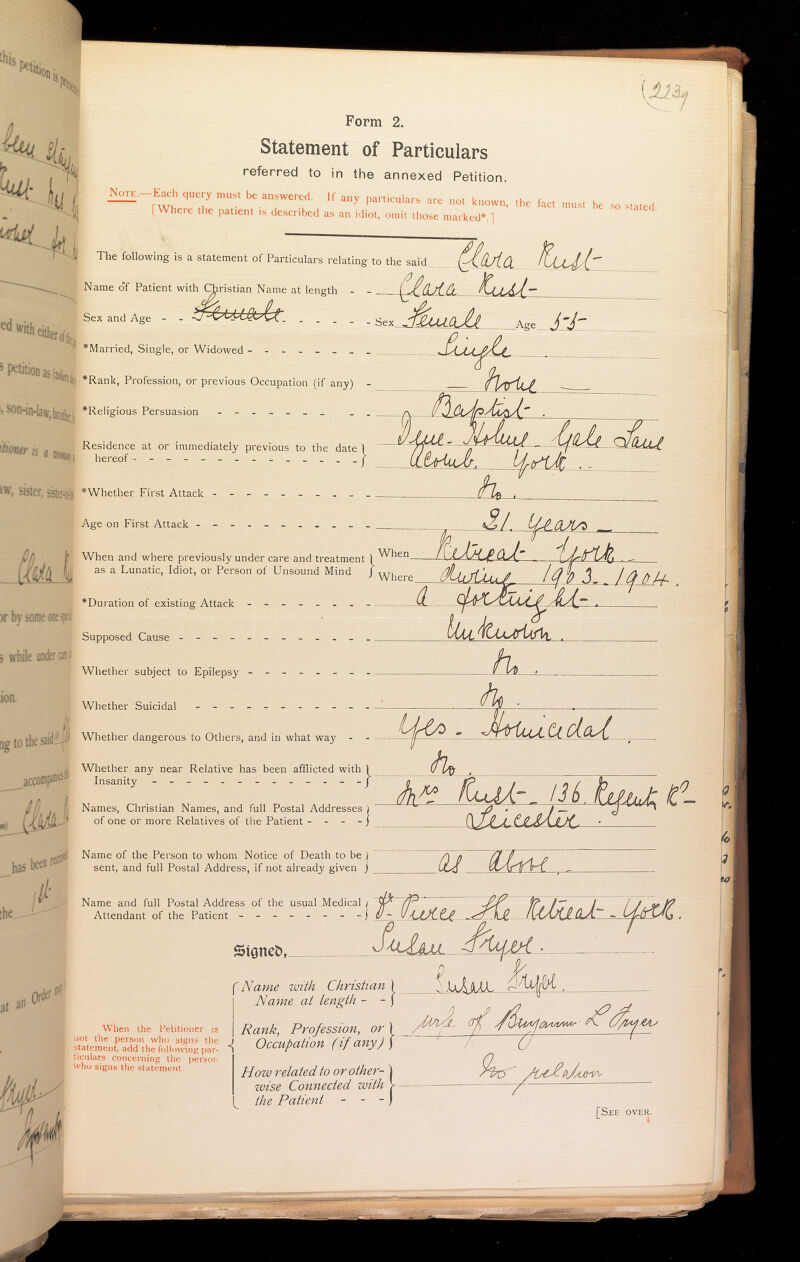 this petition is
(2239
Form 2.
Statement of Particulars
referred to in the annexed Petition.
NOTE.—Each query must be answered. If any particulars are not known, the fact must be so stated.
[Where the patient is described as an idiot, omit those marked*.]
The following is a statement of Particulars relating to the said Clara Rust
Name of Patient with Christian Name at length - - Clara Rust
Sex and Age - - Female - - - - - Sex Female Age 55
*Married, Single, or Widowed - - - - - - - Single
*Rank, Profession, or previous Occupation (if any) - — None —
*Religious Persuasion - - - - - - - - - Baptist.
Residence at or immediately previous to the date hereof - - - - - - - - - - - - - - Dene-Holme-Gale Lane
Acomb. York.
*Whether First Attack - - - - - - - - - - No.
Age on First Attack - - - - - - - - - - - 21. Years
When and where previously under care and treatment as a Lunatic, Idiot, or Person of Unsound Mind When Retreat York
Where During 1903-1904.
*Duration of existing Attack - - - - - - - - A fortnight-.
Supposed Cause - - - - - - - - - - - - Unknown.
Whether subject to Epilepsy - - - - - - - - No.
Whether Suicidal - - - - - - - - - - - No.
Whether dangerous to Others, and in what way - - Yes - Homicidal.
Whether any near Relative has been afflicted with Insanity - - - - - - - - - - - - - No.
Names, Christian Names, and full Postal Addresses of one or more Relatives of the Patient - - - - Mrs Rust - 136. Regent Rd -
Leicester.
Name of the Person to whom Notice of Death to be sent, and full Postal Address, if not already given As Above. -
Name and full Postal Address of the usual Medical Attendant of the Patient - - - - - - - - Dr Pierce The Retreat - York.
Signed, Susan Fryer.
Name with Christian Name at length - - Susan Fryer.
When the Petitioner is not the person who signs the statement, add the following particulars concerning the person who signs the statement.
Rank, Profession, or Occupation (if any) wife of Benjamin L Fryer
How related to or otherwise Connected with the Patient - - - No relation
[SEE OVER.